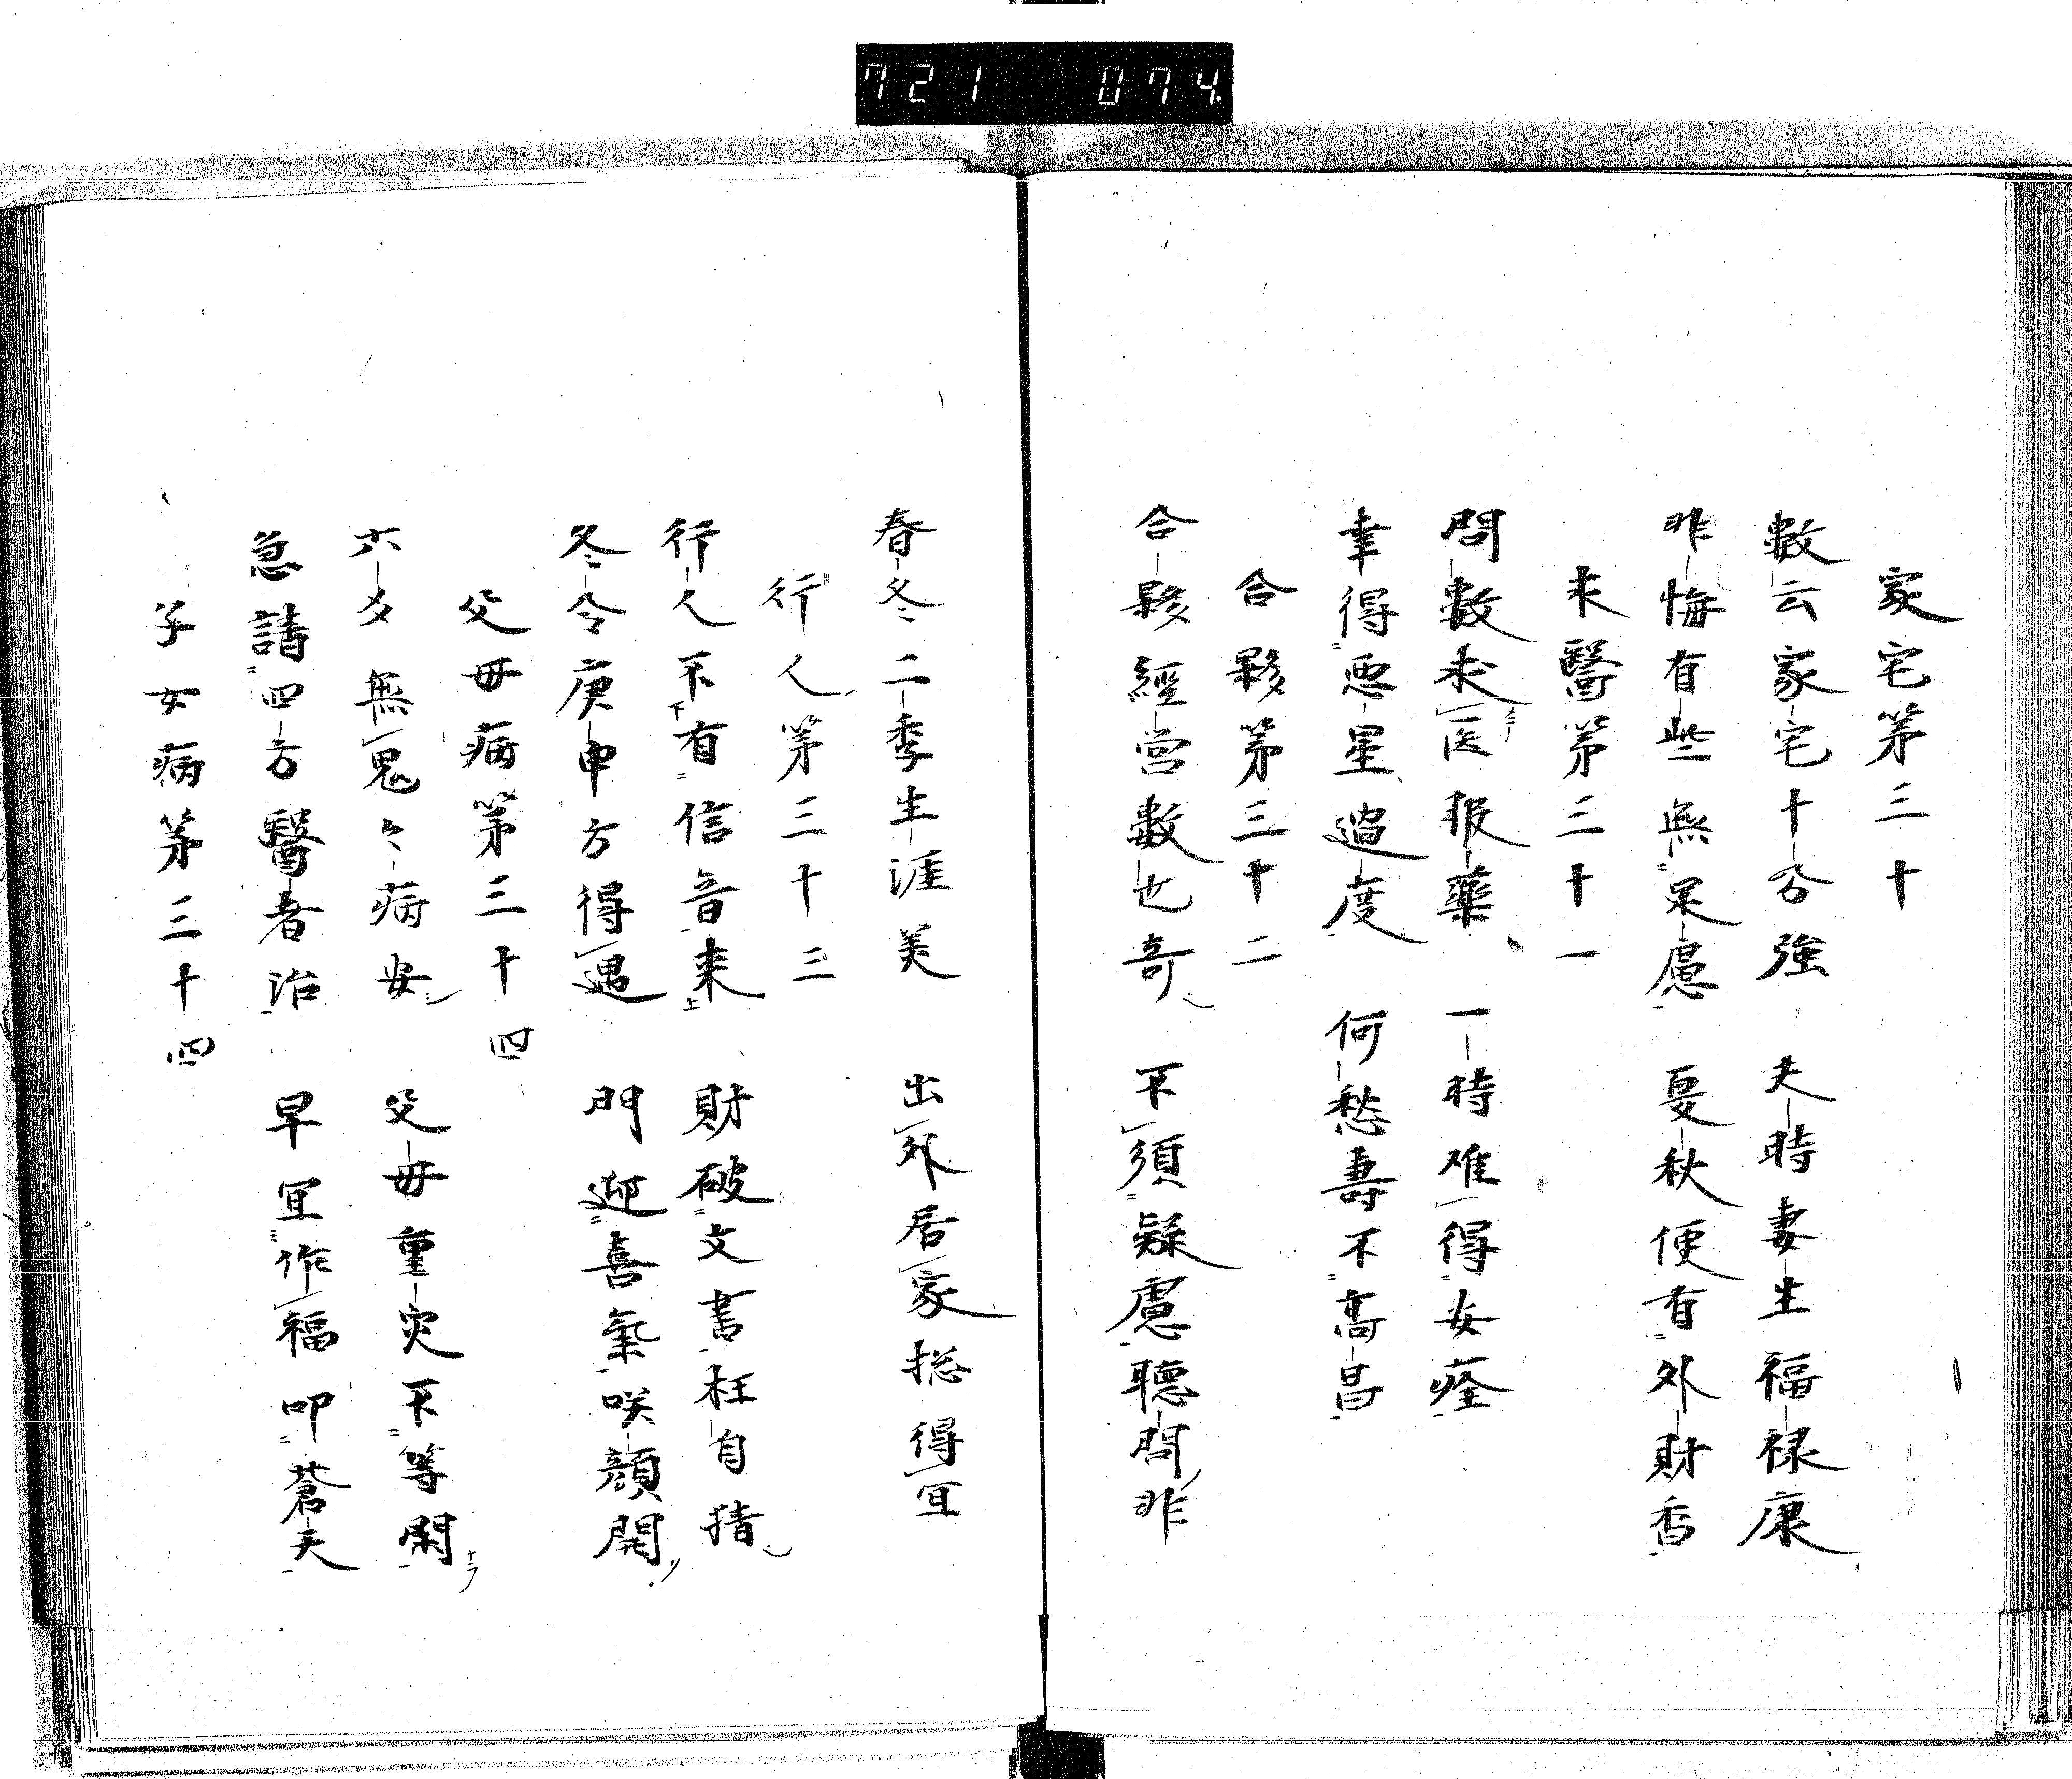 721 074
家宅第三十
數云家宅十分強 夫時妻生福禄康
非悔有些無足慮 夏秋便有外財香
求醫第三十一
問數求医报藥 一時难得安痊
幸得惡星過度 何愁壽不高昌
合夥第三十二
合夥經营數也奇 不須疑慮聽問非
春冬二季生涯美 出外居家捴得宜
行人第三十三
行人不有信音来 財破文書枉自猜
冬令庚申方得遇 門迎喜氣咲顔開
父母病第三十四
六爻無鬼々病安 父毋重灾不等閑
急請四方醫者治 早宜作福叩蒼天
子女病第三十四